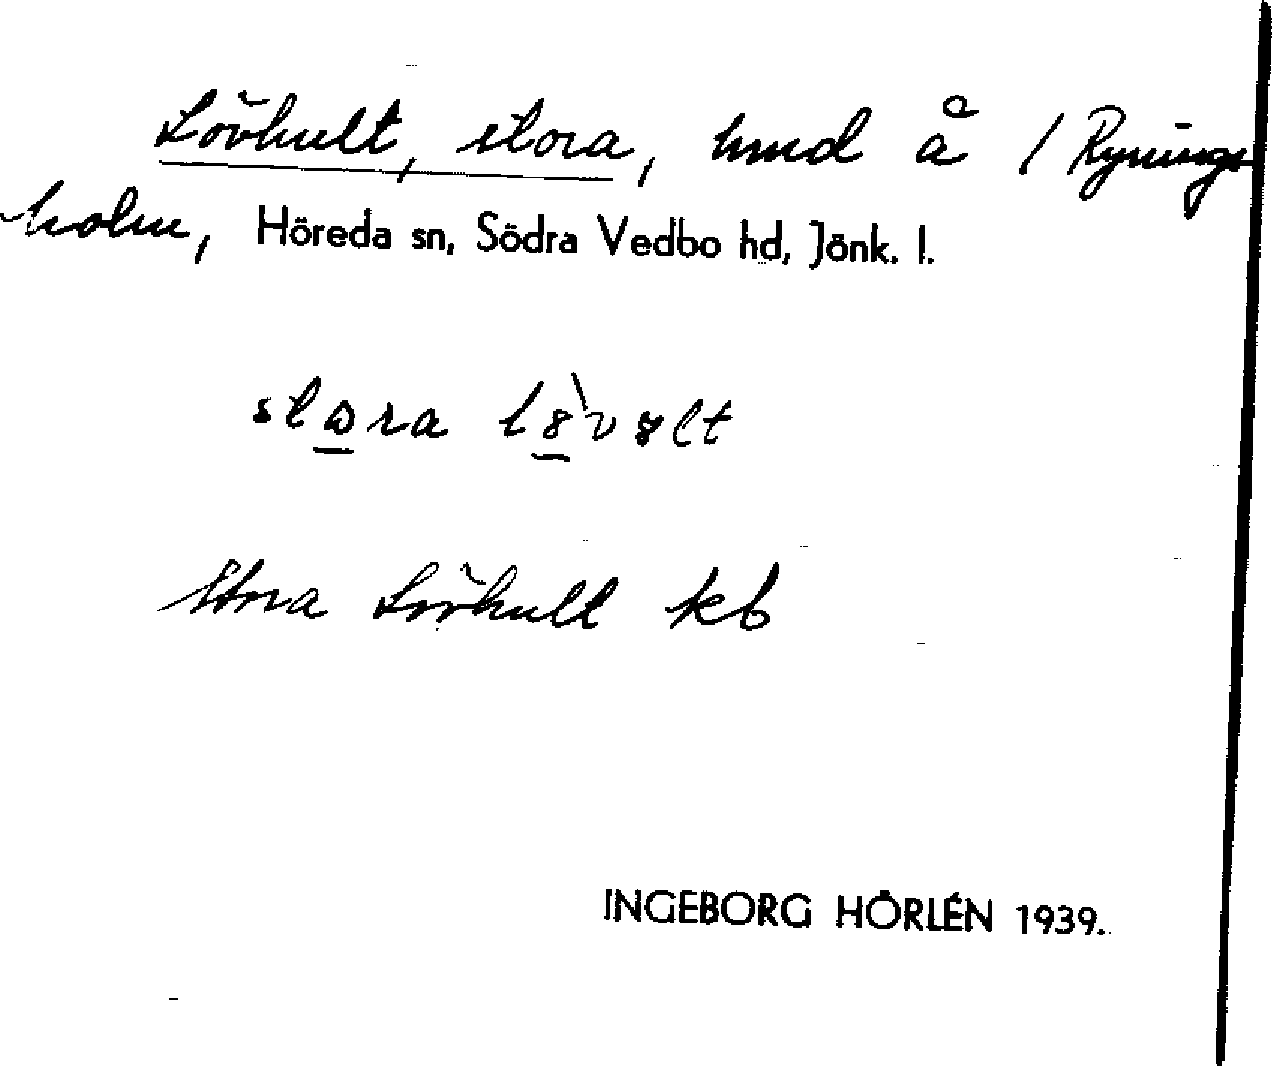 Lövhult, stora, hmd å 1 Rynings
holm, Höreda sn, Södra Vedbo hd, Jönk. l.
Stora Lövhult kb
INGEBORG HÖRLÉN 1939.